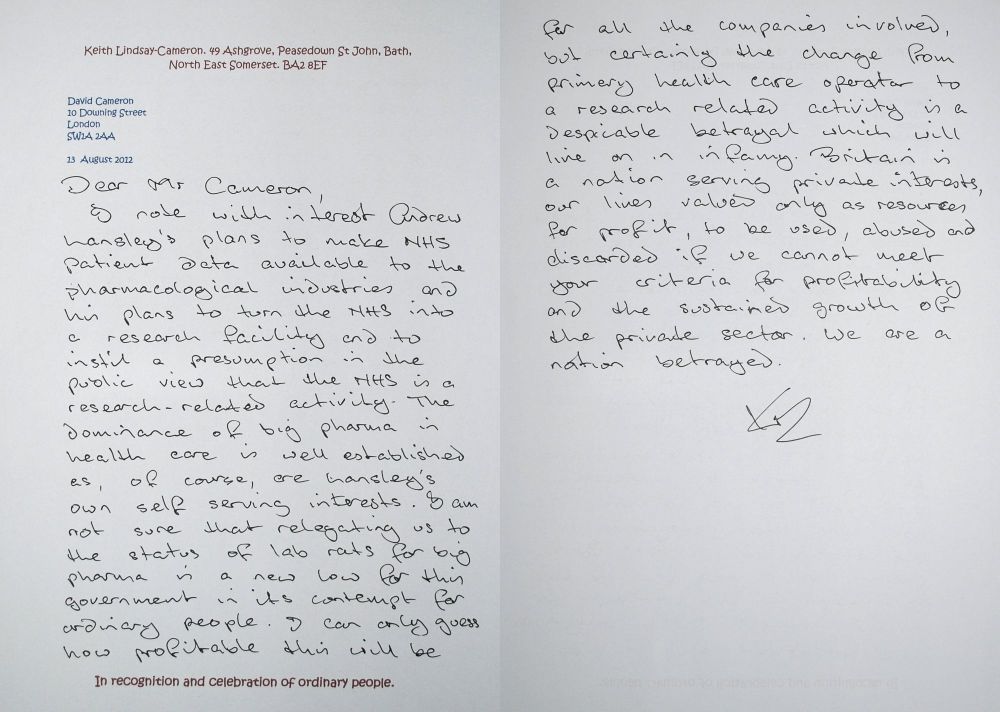 Keith Lindsay-Cameron. 49 Ashgrove, Peasedown St John, Bath,
North East Somerset. BA2 8EF
David Cameron
10 Downing Street
London
SW1A 2AA
13 August 2012
Dear Mr Cameron,
I note with interest Andrew
Lansley's plans to make NHS
patient data available to the
pharmacological industries and
his plans to turn the NHS into
a research facility and to
instil a presumption in the
public view that the NHS is a
research-related activity. The
dominance of big pharma in
health care is well established
as, of course, are Lansley's
own self serving interests. I am
not sure that relegating us to
the status of lab rats for big
pharma is a new low for this
government in its contempt for
ordinary people. I can only guess
how profitable this will be
In recognition and celebration of ordinary people.
for all the companies involved,
but certainly the change from
primary health care operator to
a research related activity is a
despicable betrayal which will
live on in infamy. Britain is
a nation serving private interests,
our lives valued only as resources
for profit, to be used, abused and
discarded if we cannot meet
your criteria for profitability
and the sustained growth of
the private sector. We are a
nation betrayed.